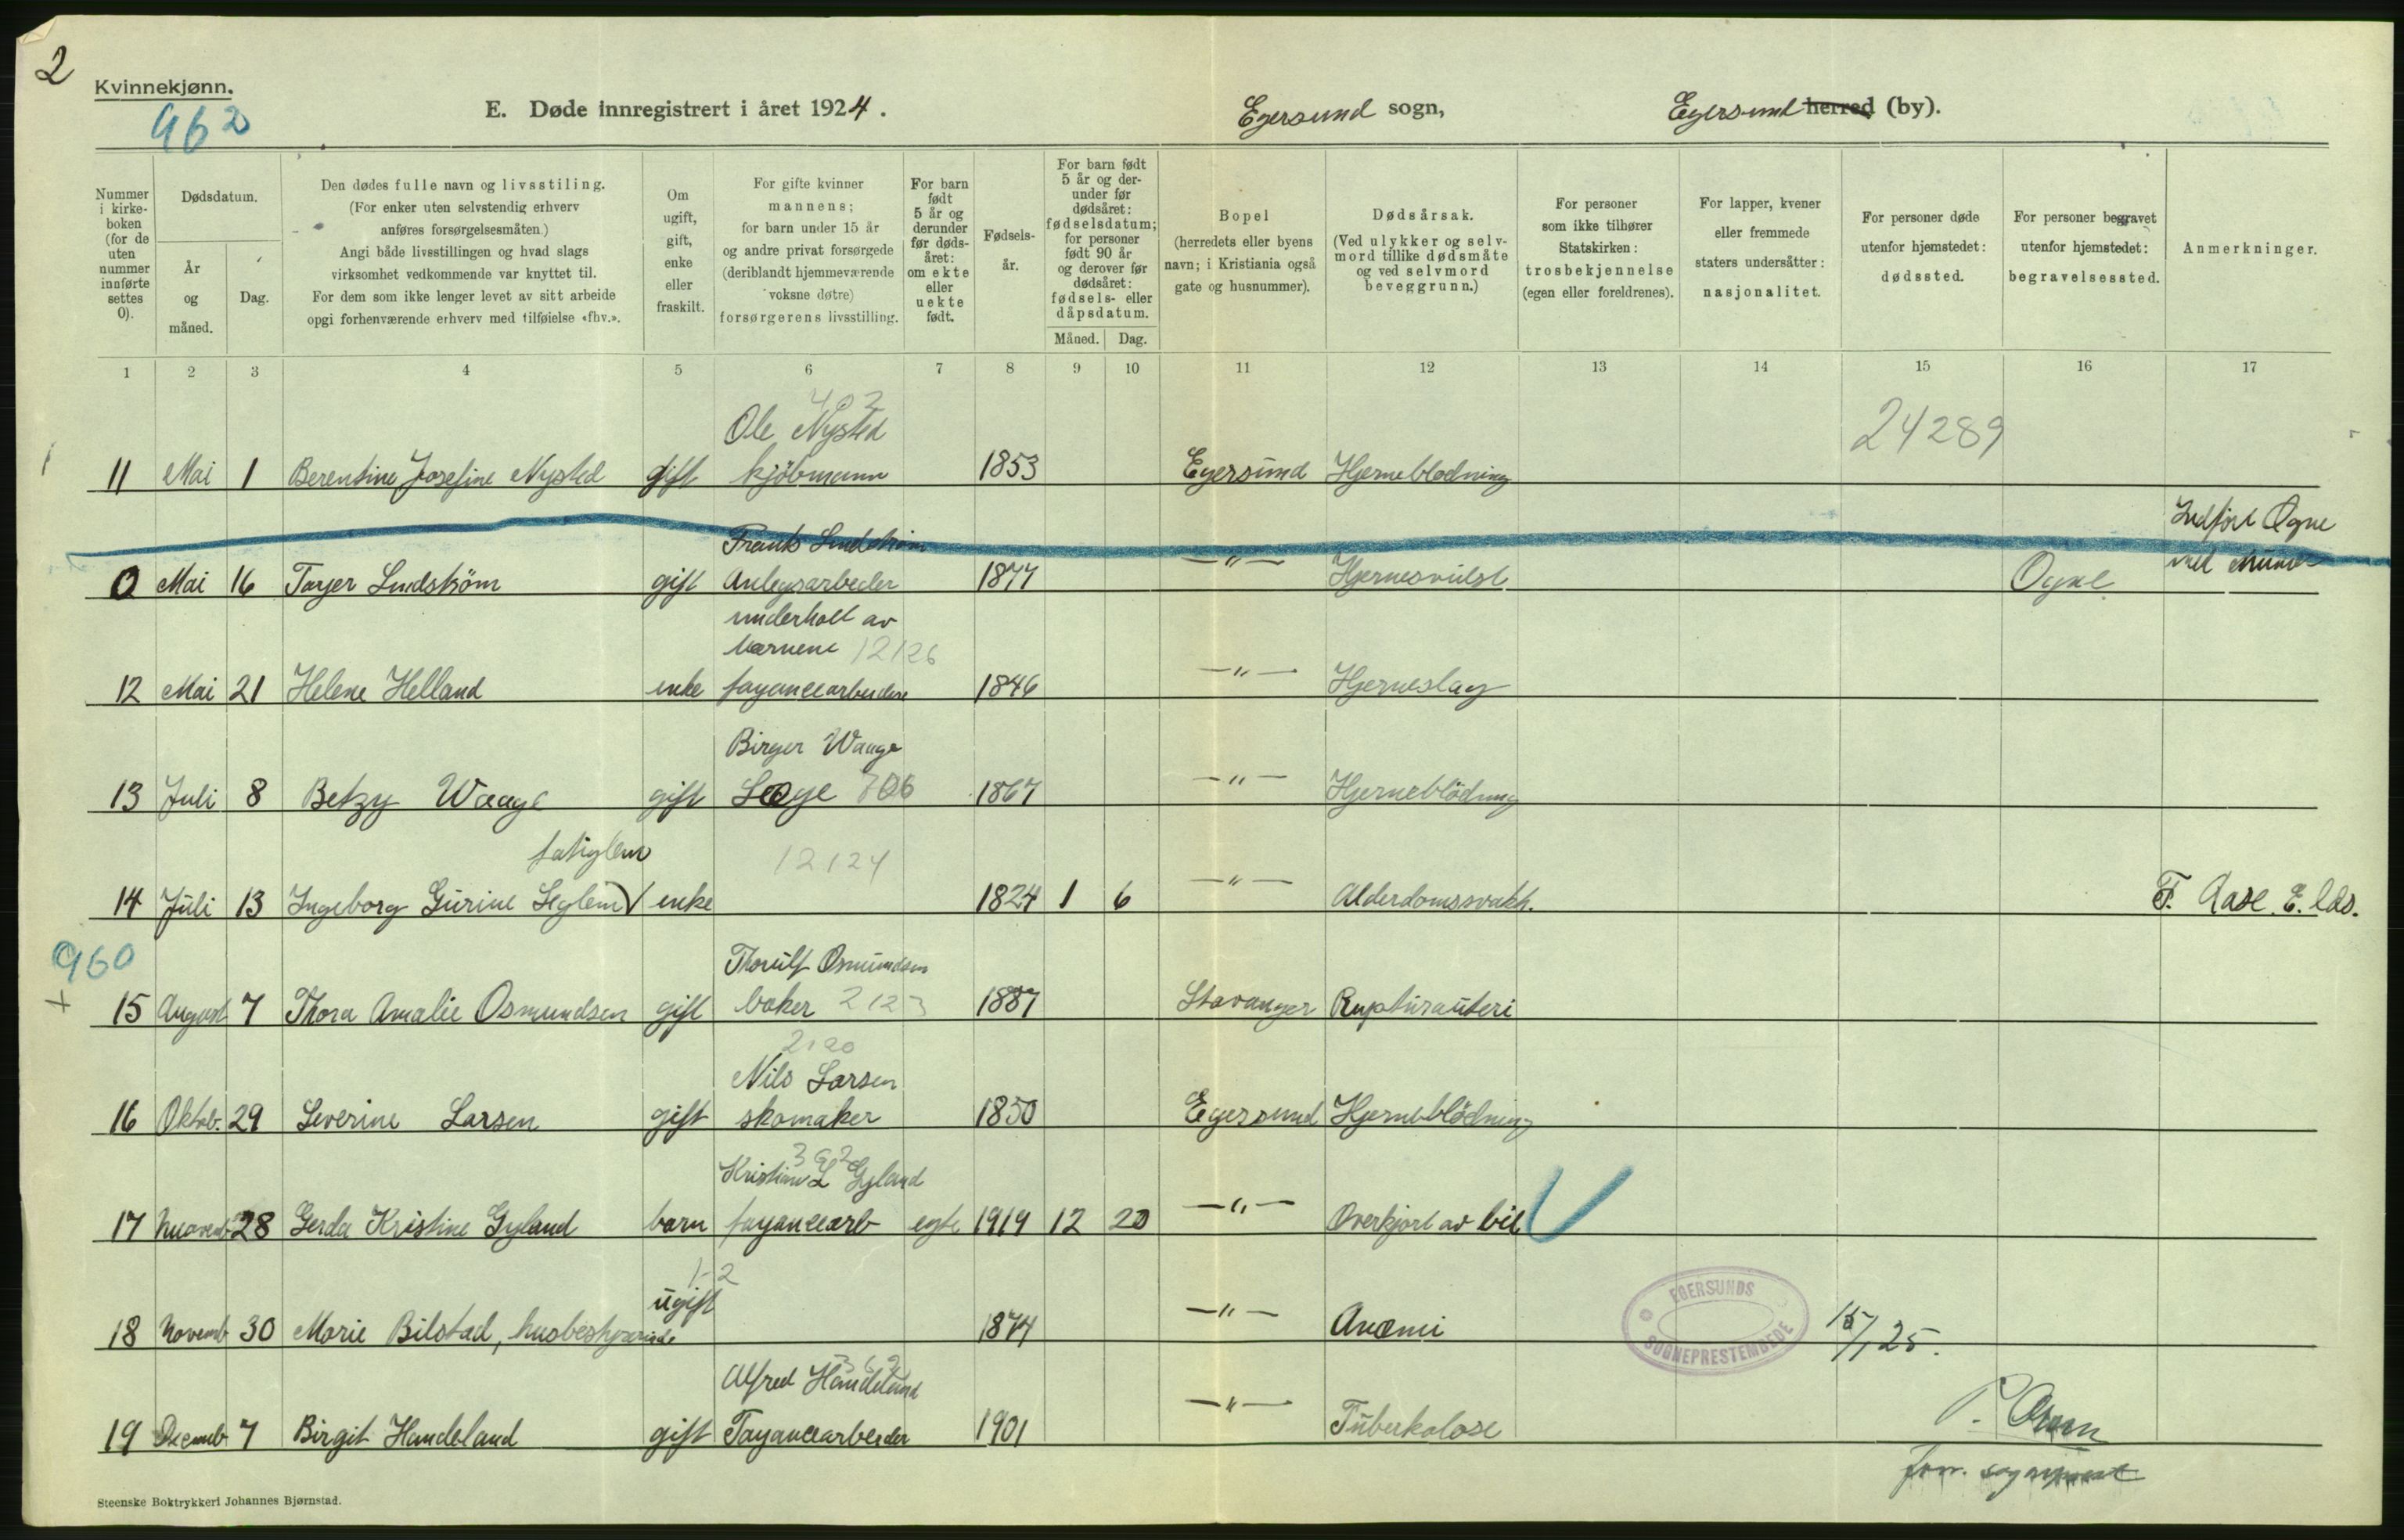 2
Kvinnekjønn.
962
E. Døde innregistrert i året 1924.
Egersund sogn,
Egersund herred (by).
Nummer i kirke-boken (for de uten nummer innførte settes 0).
Dødsdatum.
År og måned.
Dag.
Den dødes fulle navn og livsstiling.
(For enker uten selvstendig erhverv
anføres forsørgelsesmåten.)
Angi både livsstillingen og hvad slags
virksomhet vedkommende var knyttet til.
For dem som ikke lenger levet av sitt arbeide
opgi forhenværende erhverv med tilføielse «fhv.».
Om ugift, gift, enke eller fraskilt.
For gifte kvinner
mannens;
for barn under 15 år
og andre privat forsørgede
(deriblandt hjemmeværende
voksne døtre)
forsørgerens livsstilling.
For barn født 5 år og derunder før døds-året: om ekte eller uekte født.
Fødsels-år.
For barn født 5 år og der-under før dødsåret: fødselsdatum; for personer født 90 år og derover før dødsåret: fødsels- eller dåpsdatum.
Måned. Dag.
Bopel
(herredets eller byens
navn; i Kristiania også
gate og husnummer).
Dødsårsak.
(Ved ulykker og selv-
mord tillike dødsmåte
og ved selvmord
beveggrunn.)
For personer
som ikke tilhører
Statskirken:
trosbekjennelse
(egen eller foreldrenes).
For lapper, kvener
eller fremmede
staters undersåtter:
nasjonalitet.
For personer døde
utenfor hjemstedet:
dødssted.
For personer begravet
utenfor hjemstedet:
begravelsessted.
Anmerkninger.
1 2 3 4 5 6 7 8 9 10 11 12 13 14 15 16 17
402
Ole Nysted
24289
11 Mai 1 Berentine Josefine Nysted gift kjöbmann 1853 Egersund Hjerneblødning
Indført Ogne
Frants Lindström
med
0 Mai 16 Lindström gift Anlegsarbeder 1877 —"— Hjernesvulst Ogne
underholt av
barnene 12126
12 Mai 21 Helene Helland enke fayancearbeidere 1846 —"— Hjerneslag
Birger Waage
13 Juli 8 Betzy Waage gift Læge 706 1867 —"— Hjerneblödning
fatiglem
12124
14 Juli 13 Ingeborg Gurine Seglem enke 1824 1 6 —"— Alderdomssvakh. F. Aase E. lds.
960
Thorulf Osmundsen
+ 15 August 7 Thora Amalie Osmundsen gift baker 2123 1887 Stavanger Rupturauteri
Nils Larsen
16 Oktob. 29 Severine Larsen gift skomaker 1850 Egersund Hjerneblödning
392
Kristian L Gyland
17 28 Gerda Kristine Gyland barn fayancearb egte 1919 12 20 —"— Overkjört av bil
1-2
ugift
18 Novemb 30 Marie Bilstad, husbestyrerinde 1874 —"— Anæmi
EGERSUNDS SOGNEPRESTEMBEDE
15/1 25.
362
Alfred Handeland
19 Decemb 7 Birgit Handeland gift Fayancearbeider 1901 —"— Tuberkolose
Steenske Boktrykkeri Johannes Bjørnstad.